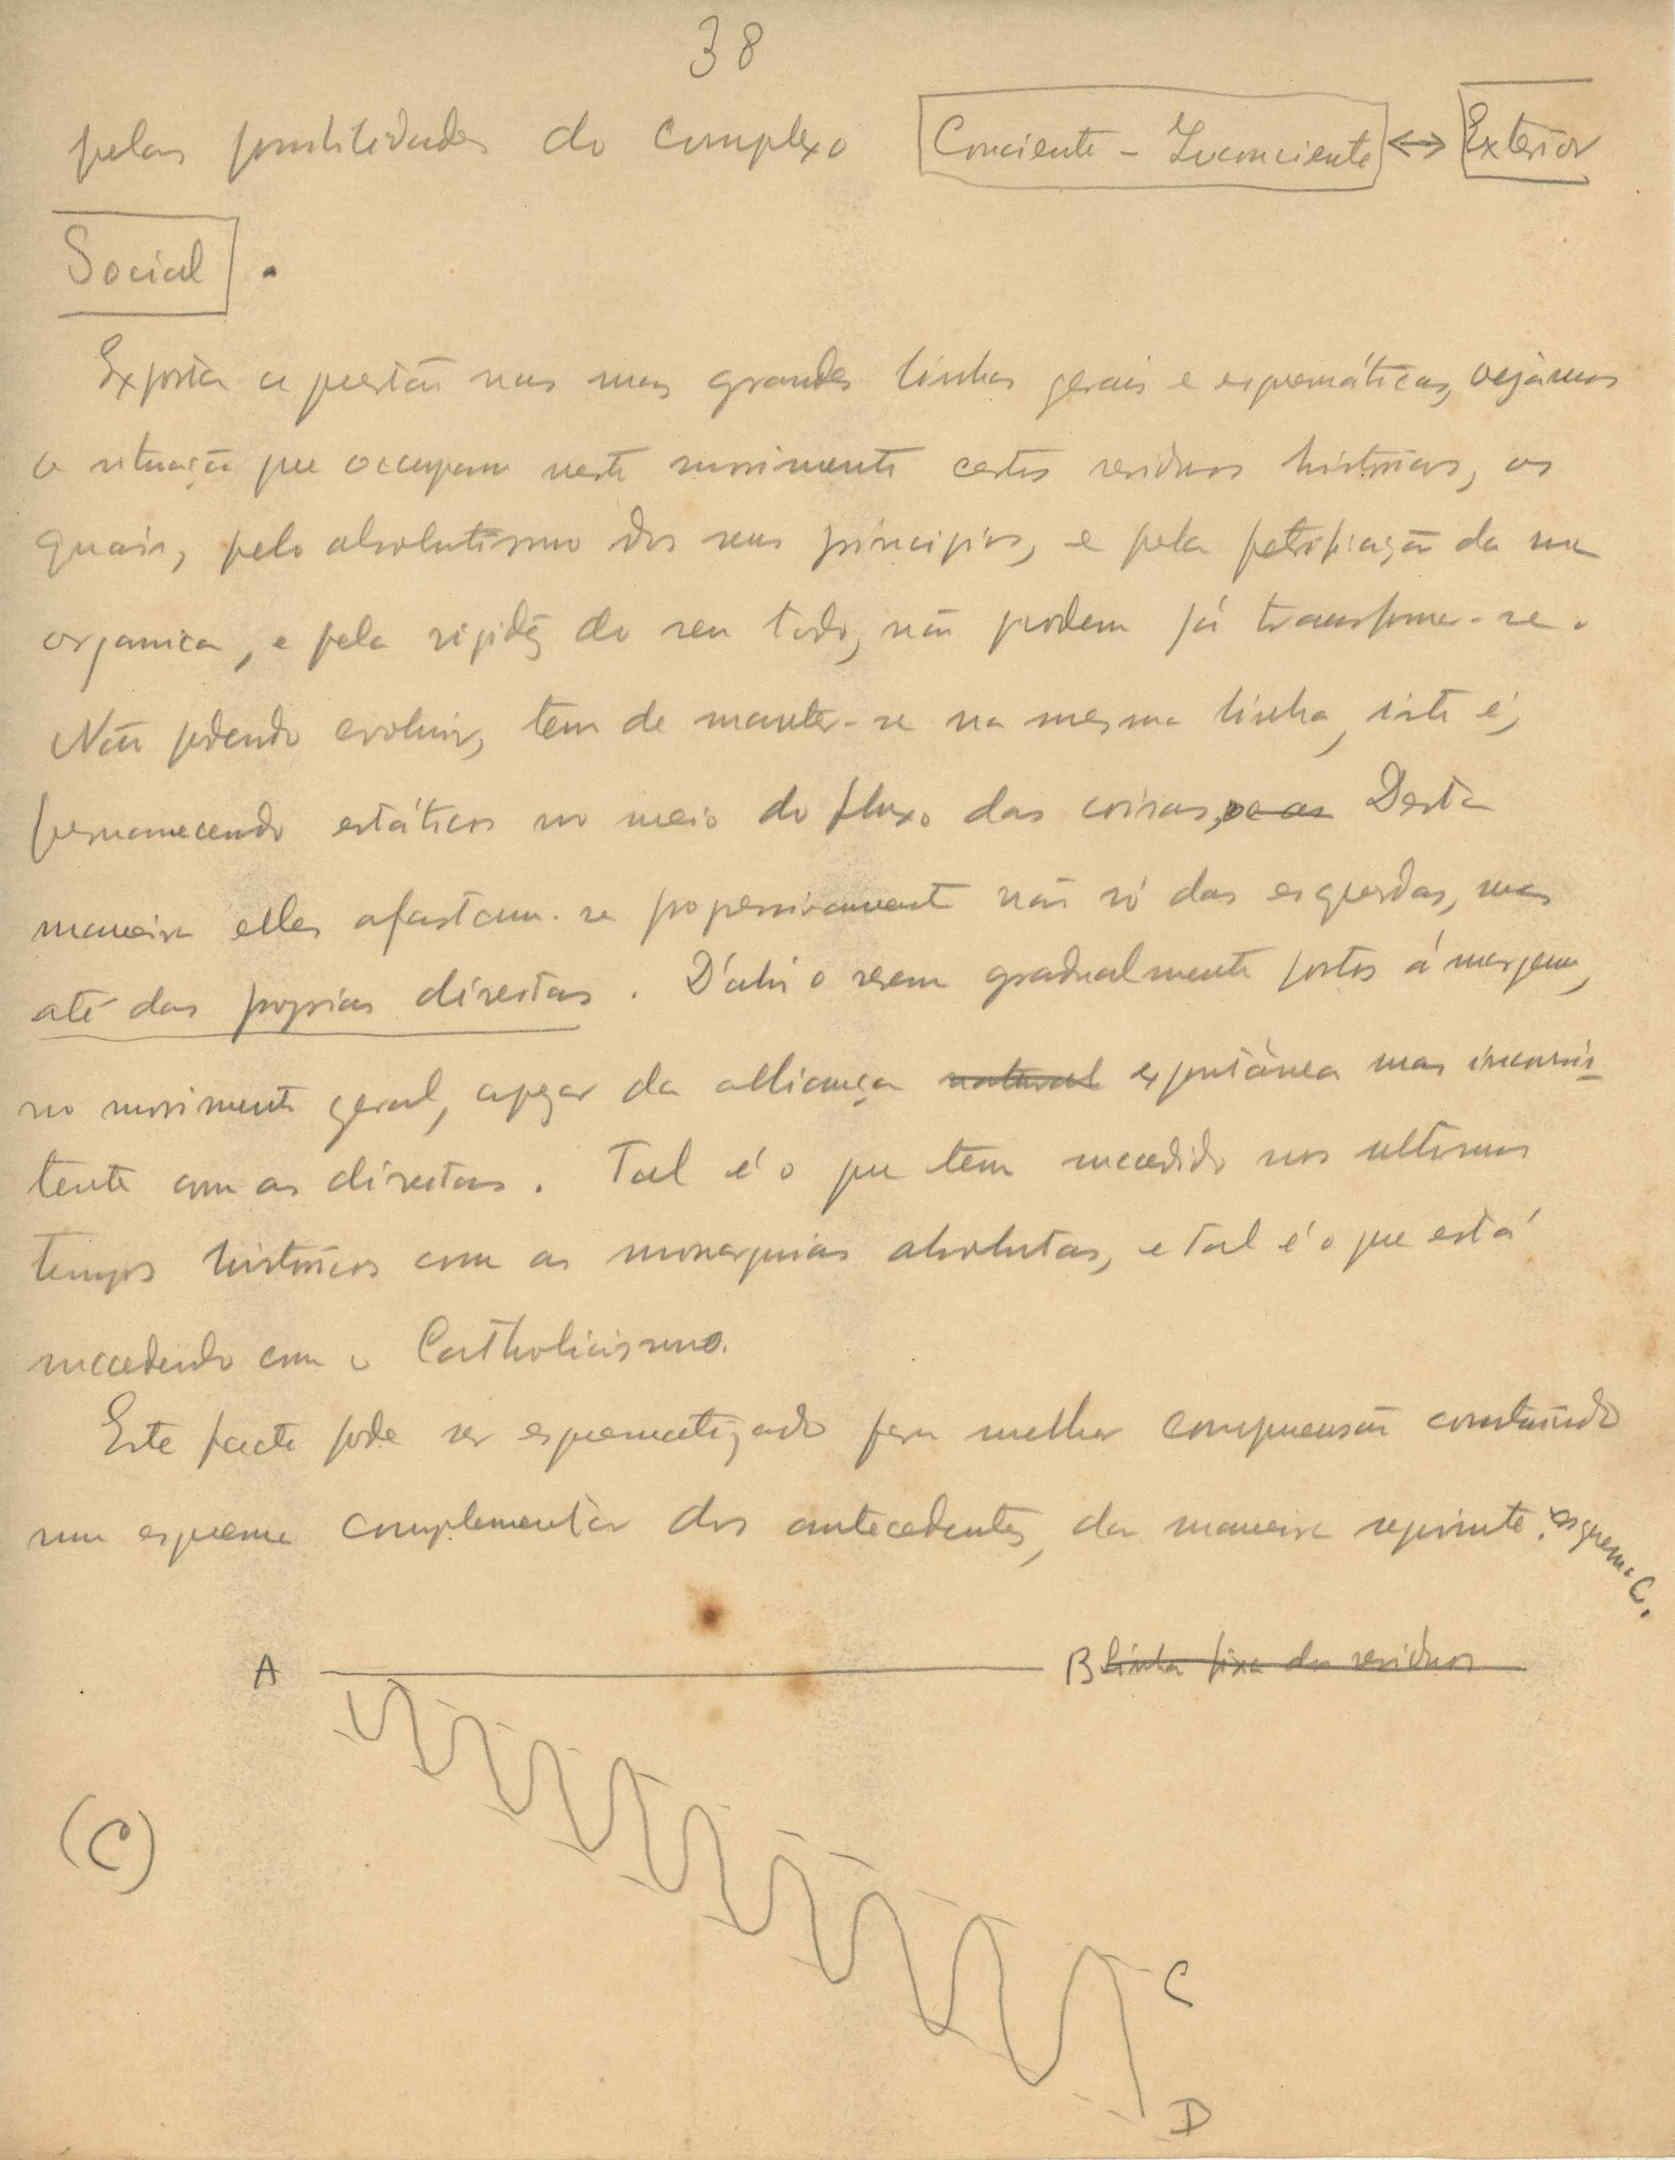 38
pelas possibilidades do complexo Conciente - Inconciente ↔ Exterior
Social .
Exposta a questão nas suas grandes linhas gerais e esquemáticas, vejâmos
a situação que occupam neste movimento certos residuos históricos, os
quais, pelo absolutismo dos seus principios, e pela petrificação da sua
organica, e pela rigidêz do seu todo, não podem já transformar-se.
Não podendo evoluir, tem de manter-se na mesma linha, isto é,
permanecendo estáticos no meio do fluxo das coisas, Desta
maneira elles afastam-se progressivamente não só das esquerdas, mas
até das proprias direitas. D'ahi o serem gradualmente postos á margem,
no movimento geral, apezar da alliança natural espontânea mas inconsis-
tente com as direitas. Tal é o que tem succedido nos ultimos
tempos históricos com as monarquias absolutas, e tal é o que está
succedendo com o Catholicismo.
Este facto pode ser esquematizado para melhor compreensão construindo
um esquema complementar dos antecedentes, da maneira seguinte: esquema C.
A B linha fixa dos residuos
(C)
C
D